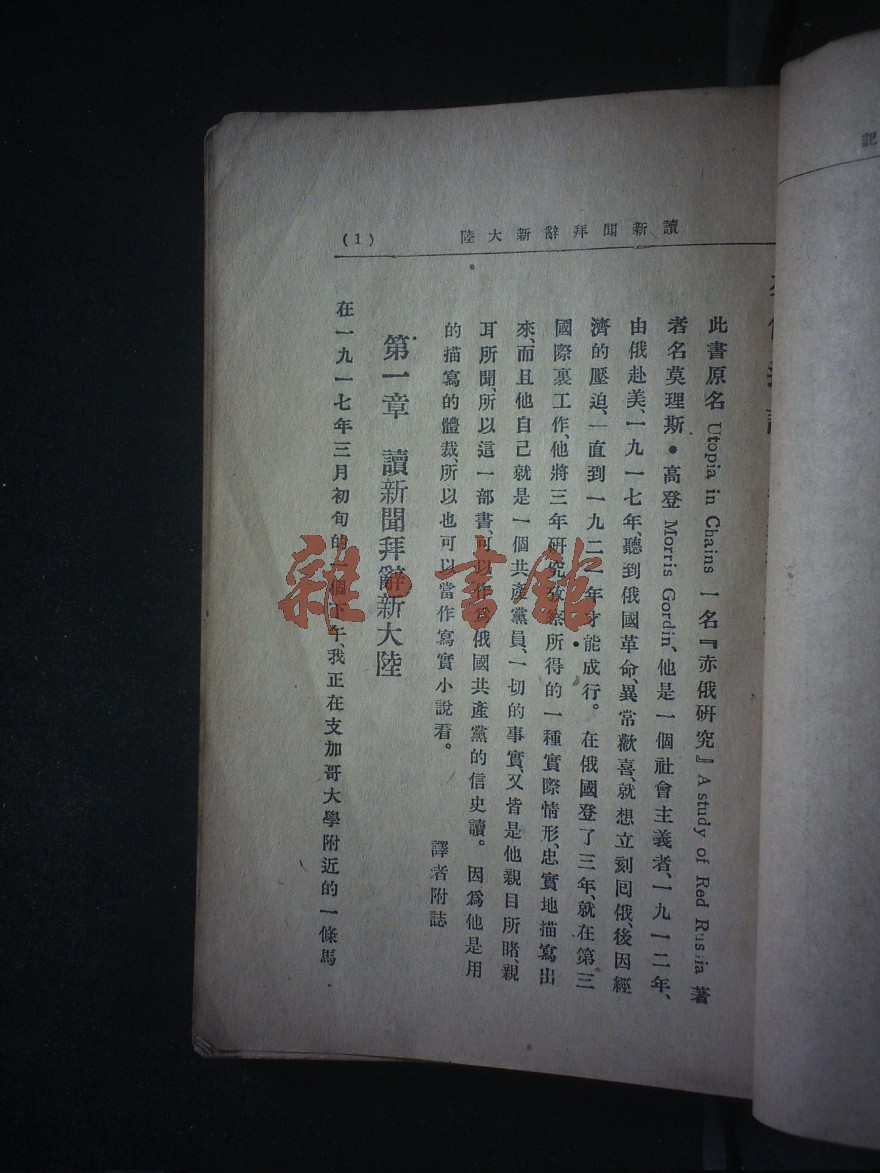 讀新聞拜辭新大陸
(1)
此書原名 Utopia in Chains 一名『赤俄研究』A study of Red Russia 著
者名莫理斯•高登 Morris Gordin、他是一個社會主義者、一九一二年、
由俄赴美、一九一七年、聽到俄國革命、異常歡喜、就想立刻囘俄、後因經
濟的壓迫、一直到一九二一年才能成行。在俄國登了三年、就在第三
國際裏工作、他將三年研究攷察所得的一種實際情形、忠實地描寫出
來、而且他自己就是一個共產黨員、一切的事實、又皆是他親目所睹、親
耳所聞、所以這一部書、可以作爲俄國共產黨的信史讀。因爲他是用
的描寫的體裁、所以也可以當作寫實小說看。
譯者附誌
第一章 讀新聞拜辭新大陸
在一九一七年三月初旬的一個下午、我正在支加哥大學附近的一條馬
雜·書館
記